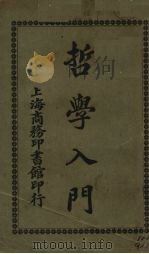 狗
哲學入門
上海商務印書館印行